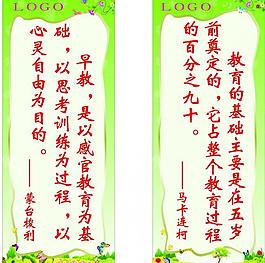 LOGO
早教，是以感官教育为基
础，以思考训练为过程，以
心灵自由为目的。
——蒙台梭利
LOGO
教育的基础主要是在五岁
前奠定的，它占整个教育过程
的百分之九十。
——马卡连柯